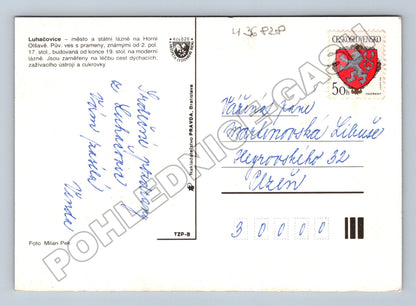 Luhačovice – město a státní lázně na Horní
Olšavě. Pův. ves s prameny, známými od 2. pol.
17. stol., budovaná od konce 19. stol. na moderní
lázně. Jsou zaměřeny na léčbu cest dýchacích,
zažívacího ústrojí a cukrovky.
Srdečné pozdravy
z Luhačovic
Vám posílá
Vanda
Foto Milan Pek
Nakladatelstvo PRAVDA, Bratislava
TZP-B
4-36 PZP
ČESKOSLOVENSKO
50h
Vážená paní
Martinovská Libuše
Heyrovského 32
Plzeň
3 0 0 0 0
POHLEDNICE-GASH